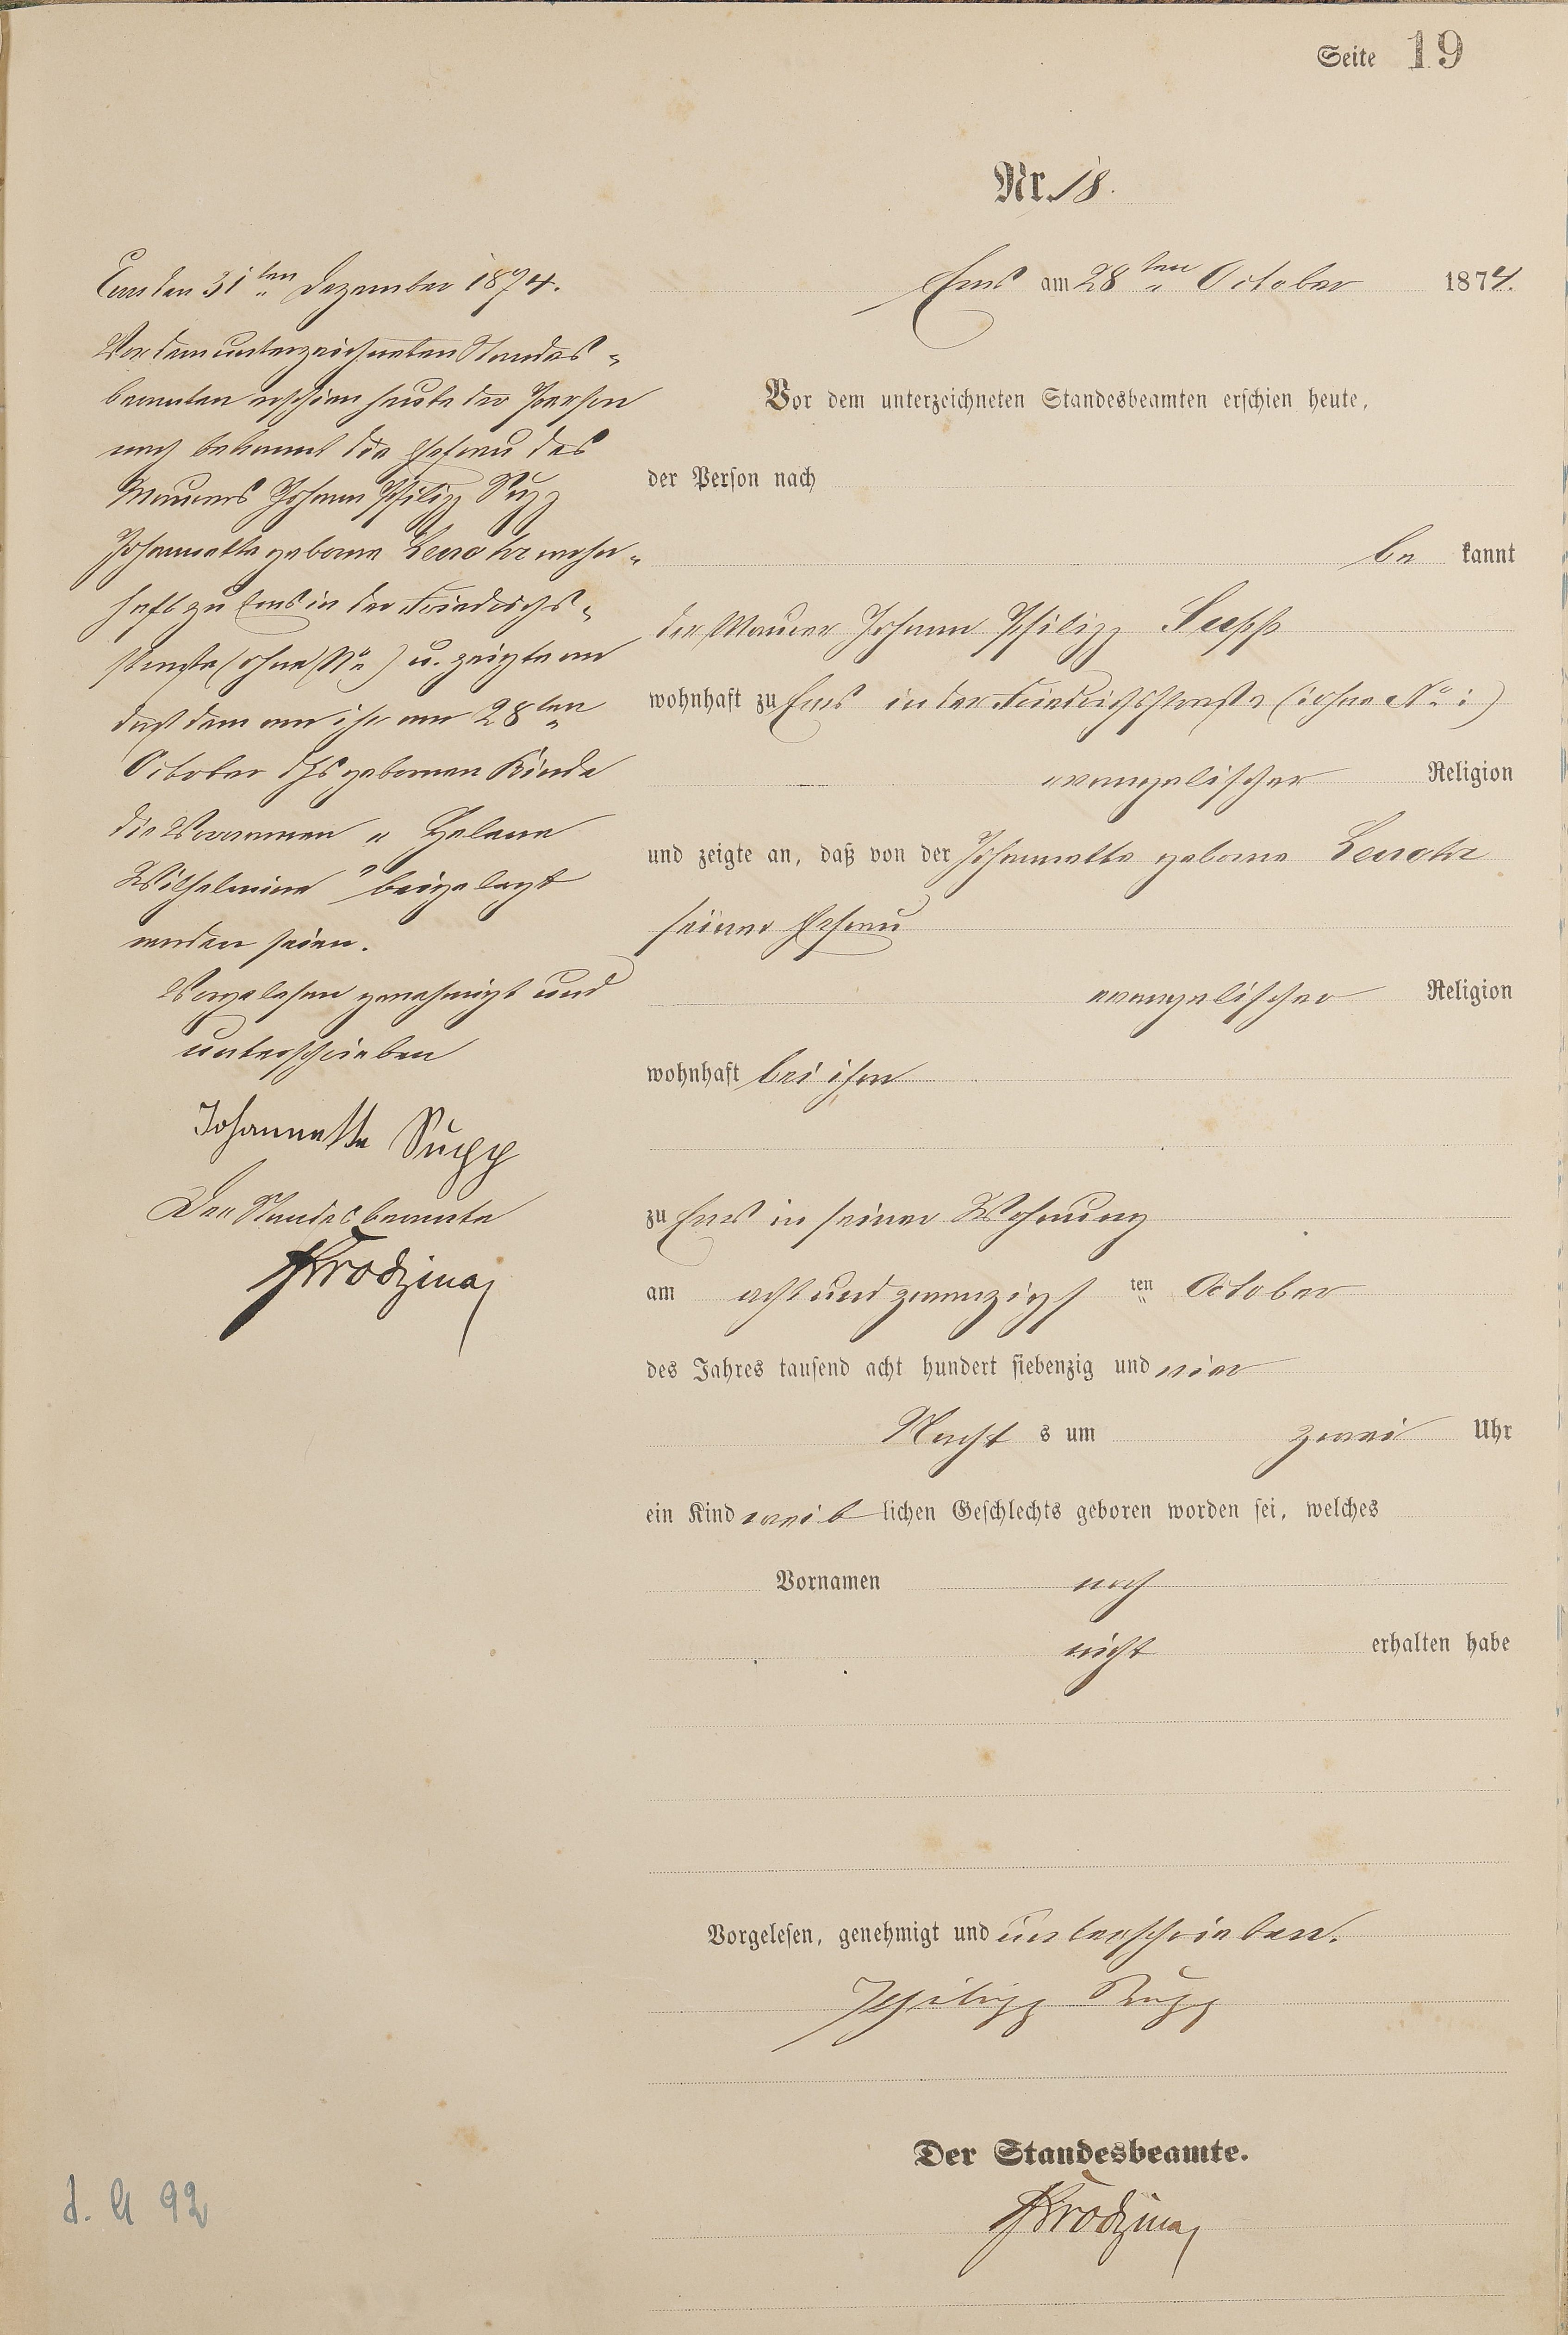 Seite 19
Nr. 18.
Ems am 28ten October 1874.
Vor dem unterzeichneten Standesbeamten erschien heute,
der Person nach
be kannt
der Maurer Johann Philipp Supp
wohnhaft zu Ems in der Friedrichsstraße (: ohne No :)
evangelischer Religion
und zeigte an, daß von der Johannette geborne Lenohr
seiner Ehefrau
evangelischer Religion
wohnhaft bei ihm
zu Ems in seiner Wohnung
am acht und zwanzigs ten October
des Jahres tausend acht hundert siebenzig und vier
Nacht s um zwei Uhr
ein Kind weib lichen Geschlechts geboren worden sei, welches
Vornamen noch
nicht erhalten habe
Vorgelesen, genehmigt und unterschrieben.
Philipp Supp
Der Standesbeamte.
Ems den 31ten Dezember 1874.
Vor dem unterzeichneten Standes-
beamten erschien heute der Person
nach bekannt die Ehefrau des
Maurers Johann Philipp Supp
Johannette geborne Lenohr wohn-
haft zu Ems in der Friedrichs-
straße (ohne No) u. zeigte an
daß dem von ihr am 28ten
October dhs gebornen Kinde
die Vornamen „Helene
Wilhelmine" beigelegt
worden seien.
Vorgelesen genehmigt und
unterschrieben
Johannette Supp
Der Standesbeamte